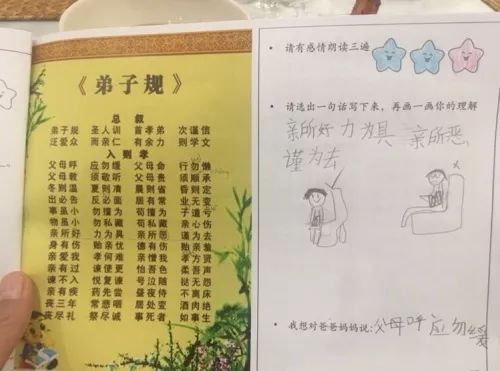 《弟子规》
总叙
弟子规 圣人训 首孝弟 次谨信
泛爱众 而亲仁 有余力 则学文
入则孝
父母呼 应勿缓 父母命 行勿懒
父母教 须敬听 父母责 须顺承
冬则温 夏则清 晨则省 昏则定
出必告 反必面 居有常 业无变
事虽小 勿擅为 苟擅为 子道亏
物虽小 勿私藏 苟私藏 亲心伤
亲所好 力为具 亲所恶 谨为去
身有伤 贻亲忧 德有伤 贻亲羞
亲爱我 孝何难 亲憎我 孝方贤
亲有过 谏使更 怡吾色 柔吾声
谏不入 悦复谏 号泣随 挞无怨
亲有疾 药先尝 昼夜侍 不离床
丧三年 常悲咽 居处变 酒肉绝
丧尽礼 祭尽诚 事死者 如事生
• 请有感情朗读三遍
• 请选出一句话写下来，再画一画你的理解
亲所好 力为具 亲所恶
谨为去
• 我想对爸爸妈妈说：父母呼 应勿缓